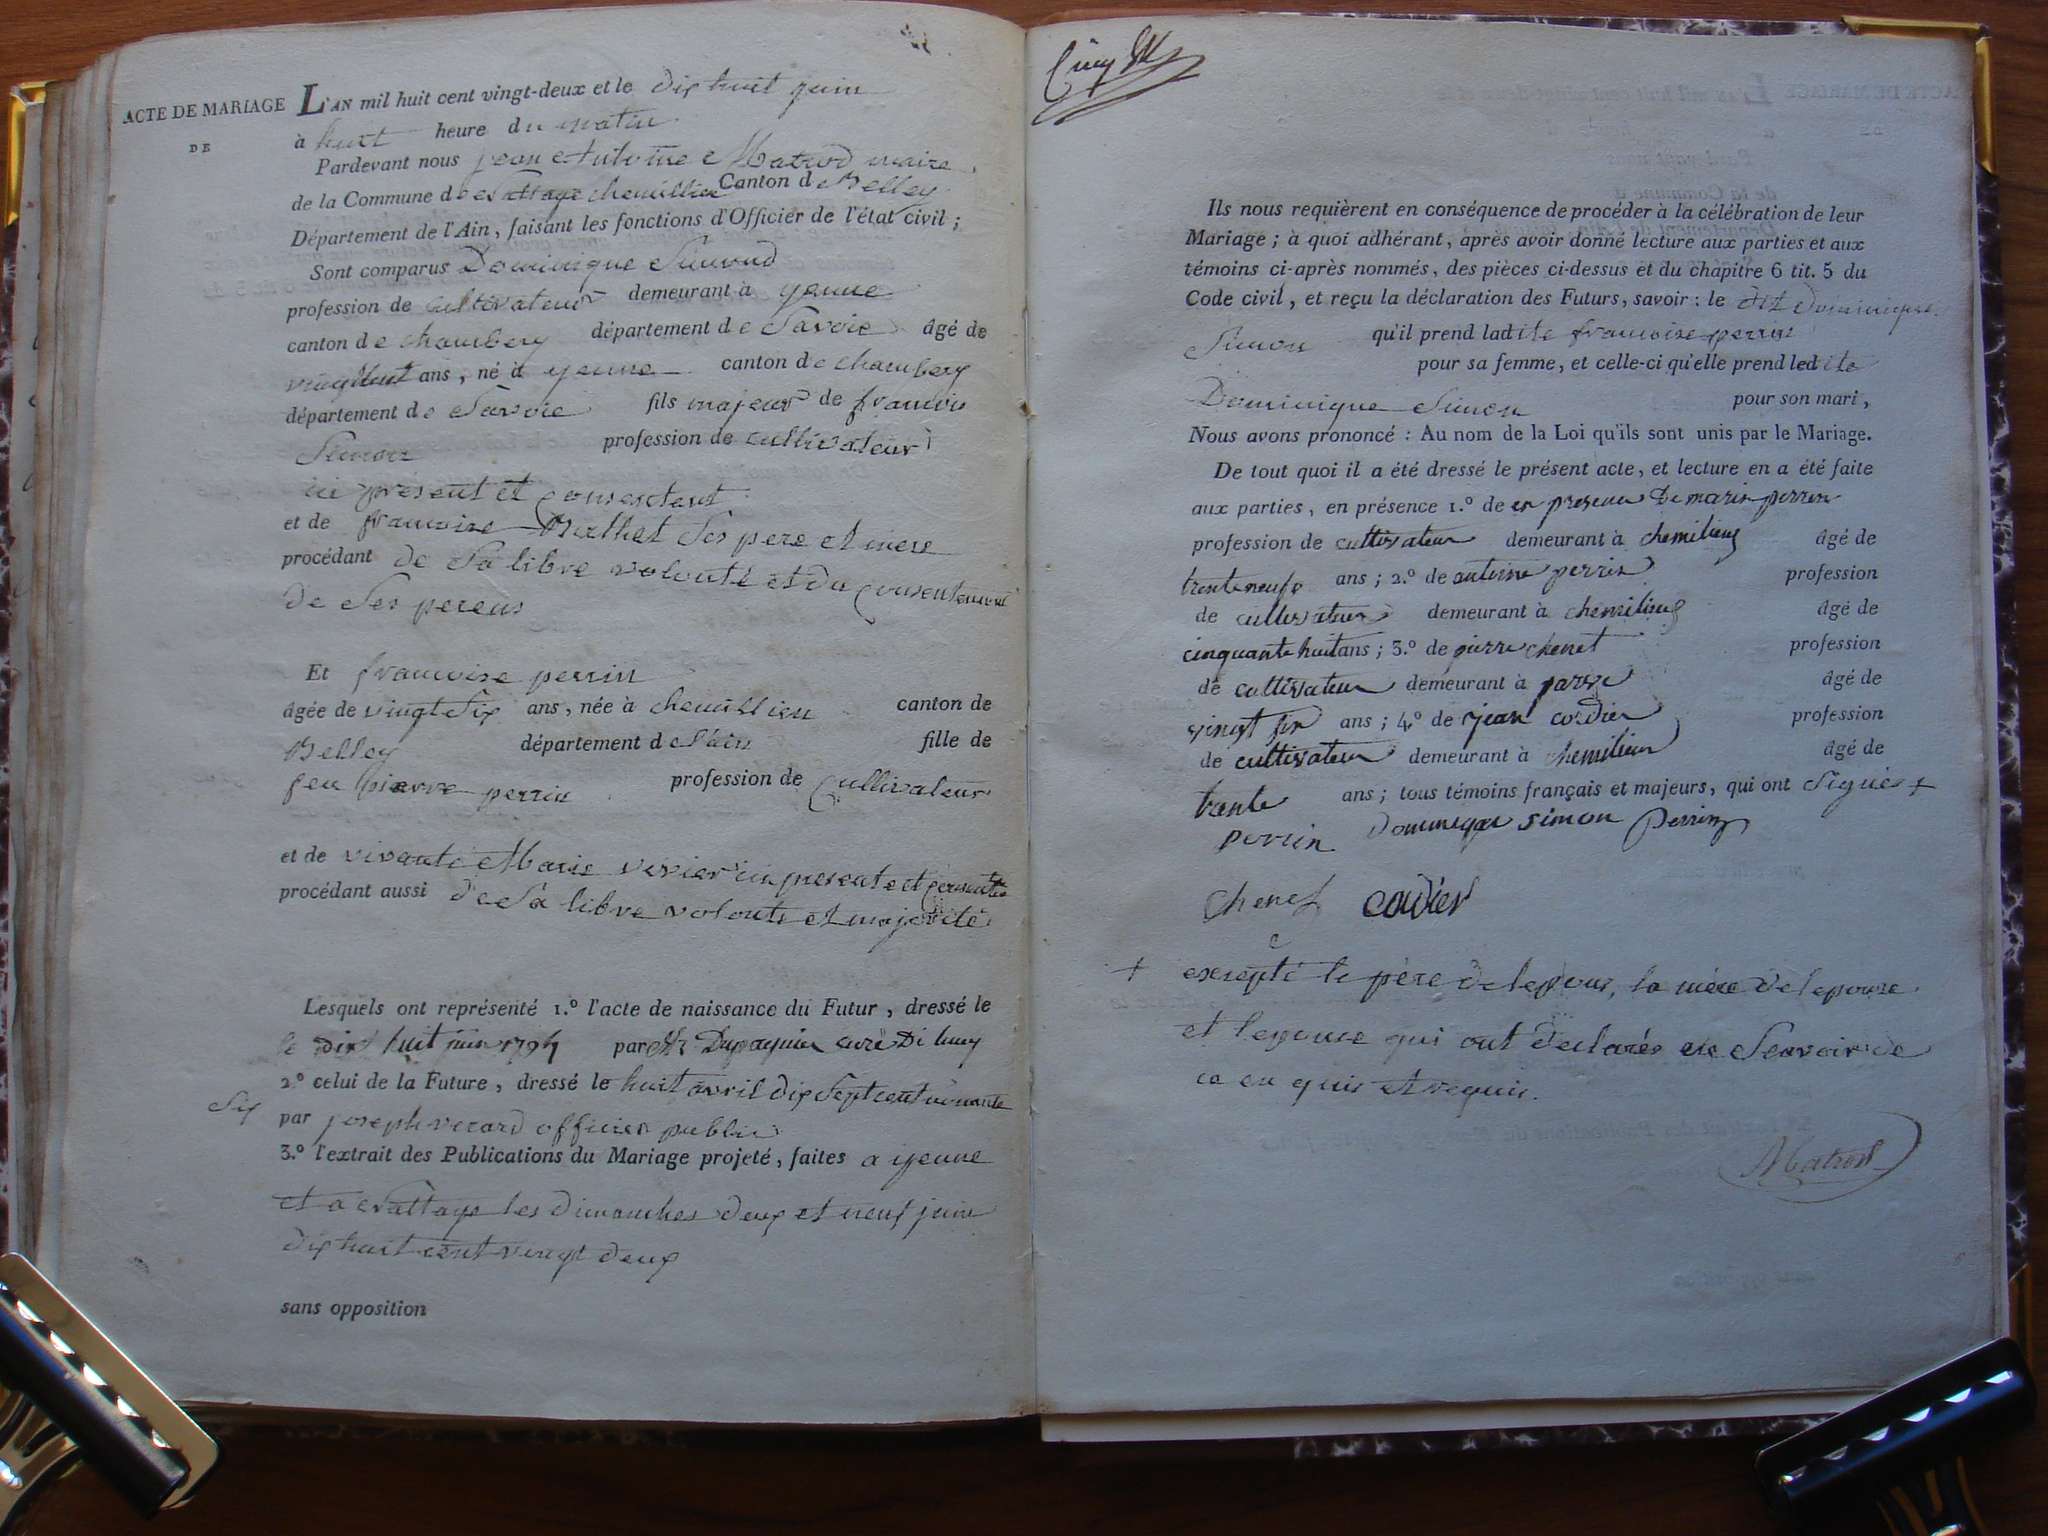 ACTE DE MARIAGE
DE
L'AN mil huit cent vingt-deux et le dix huit juin
à huit heure du matin
Pardevant nous jean Antoine Matrod maire
de la Commune de Canton de Belley
Département de l'Ain, faisant les fonctions d'Officier de l'état civil ;
Sont comparus Dominique
profession de cultivateur demeurant à yenne
canton de chambery département de Savoie âgé de
vingt huit ans, né à yenne canton de chambery
département de Savoie fils majeur de francois
Simon profession de cultivateur
ici présent et consentent
et de francoise Ses pere et mere
procédant de Sa libre volonté et du consentement
de Ses
Et francoise perrin
âgée de vingt Six ans, née à chemillieu canton de
Belley département de l'ain fille de
feu pierre perrin profession de cultivateur
et de vivante Marie ici presente et
procédant aussi de Sa libre volonté et majorité
Lesquels ont représenté 1.º l'acte de naissance du Futur, dressé le
le dix huit juin par curé
2º celui de la Future, dressé le huit avril dix Sept cent nonante
Six
par joseph officier public
3.º l'extrait des Publications du Mariage projeté, faites a yenne
et a les dimanches deux et neuf juin
dix huit cent vingt deux
sans opposition
Ils nous requièrent en conséquence de procéder à la célébration de leur
Mariage ; à quoi adhérant, après avoir donné lecture aux parties et aux
témoins ci-après nommés, des pièces ci-dessus et du chapitre 6 tit. 5 du
Code civil, et reçu la déclaration des Futurs, savoir : le dit Dominique
Simon qu'il prend ladite francoise perrin
pour sa femme, et celle-ci qu'elle prend ledite
Dominique Simon pour son mari,
Nous avons prononcé : Au nom de la Loi qu'ils sont unis par le Mariage.
De tout quoi il a été dressé le présent acte, et lecture en a été faite
aux parties, en présence 1.º de en presence De marin perrin
profession de cultivateur demeurant à chemilieu âgé de
trente neufs ans ; 2.º de antoine perrin profession
de cultivateur demeurant à chemilieu âgé de
cinquante huit ans ; 3.º de pierre chenet profession
de cultivateur demeurant à âgé de
vingt ans ; 4.º de jean cordier profession
de cultivateur demeurant à chemilieu âgé de
trante ans ; tous témoins français et majeurs, qui ont Signés +
perrin Dominique simon Perrin
Chenet cordier
+ excepté le père de lepous, la mère de lepouse
et lepouse qui ont déclarés ne Scavoir de
ce en quis et requis.
Matrod